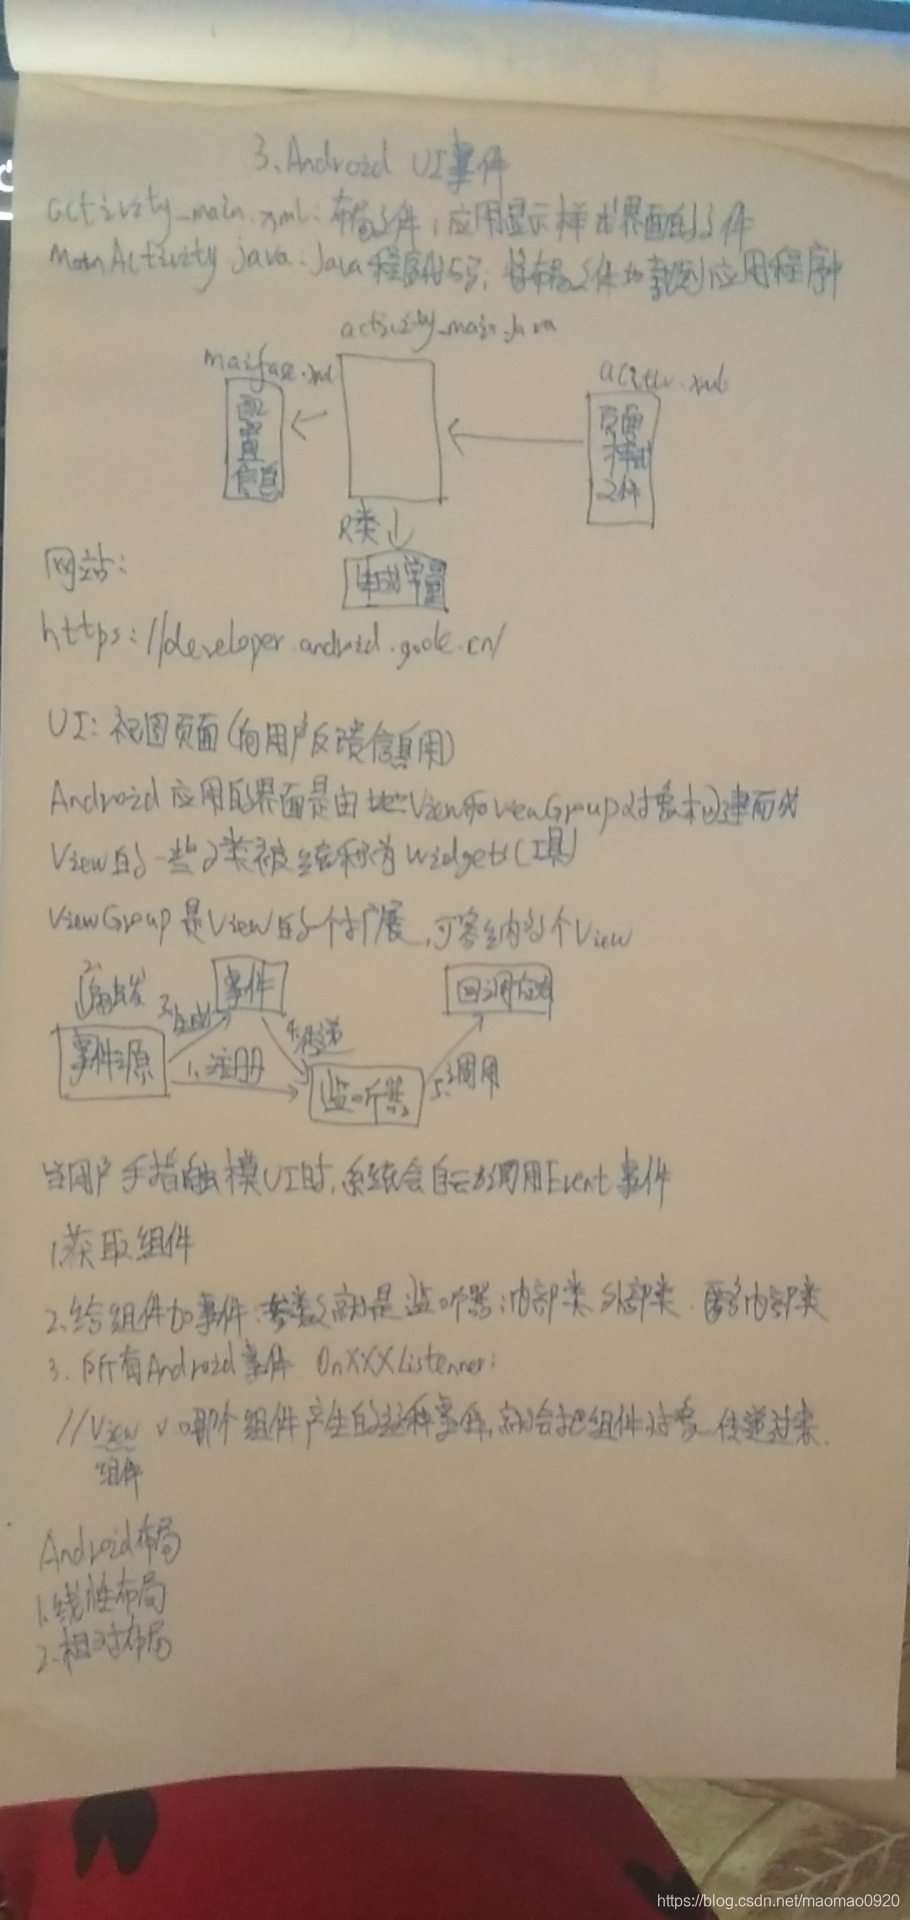 3、Android UI事件
activity_main.xml:布局文件,应用显示样式界面的文件
MainActivity java:Java程序代码;将布局文件加载到应用程序中
activity_main.java
.xml
.xml
配置信息
页面样式文件
R类
生成常量
网站:
https://developer.android.goole.cn/
UI:视图页面(向用户反馈信息用)
Android应用的界面是由View和ViewGroup对象构建而成
View的一些子类被统称为Widgets(工具)
ViewGroup是View的一个扩展,可容纳多个View
2.触发
事件
回调
3.生成
4.传递
事件源
1、注册
监听器
5.调用
当用户手指触摸UI时,系统会自动调用Event事件
1.获取组件
2.给组件加事件:参数就是监听器;内部类、外部类、内部类
3.所有Android事件 OnXXXListenner:
//View v 哪个组件产生的这种事件,就会把组件对象传递过来.
组件
Android布局
1.线性布局
2.相对布局
https://blog.csdn.net/maomao0920